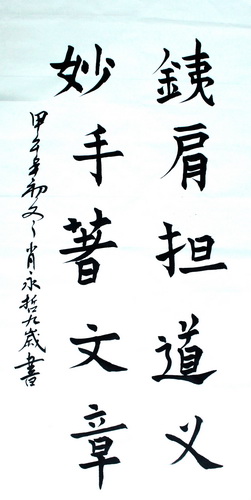 銕肩担道义
妙手著文章
甲午年初 肖永哲九歲書